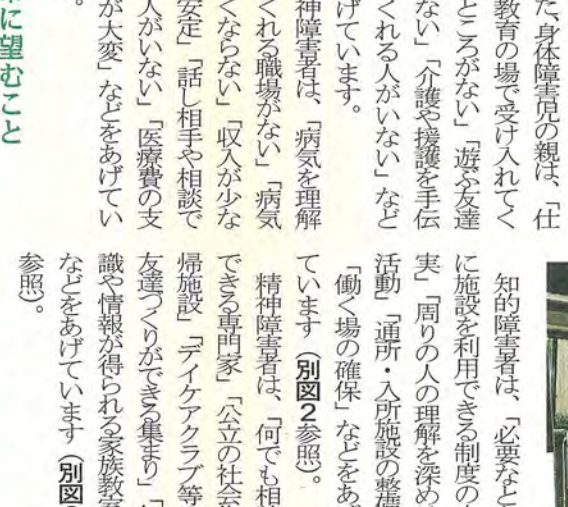 た、身体障害児の親は、「仕
教育の場で受け入れてく
ところがない」「遊ぶ友達
ない」「介護や援護を手伝
くれる人がいない」など
げています。
神障害者は、「病気を理解
くれる職場がない」「病気
くならない」「収入が少な
安定」「話し相手や相談で
人がいない」「医療費の支
が大変」などをあげてい
。
に望むこと
知的障害者は、「必要なと
に施設を利用できる制度の
実」「周りの人の理解を深め
活動」「通所・入所施設の整備
「働く場の確保」などをあげ
ています（別図2参照）。
精神障害者は、「何でも相
できる専門家」「公立の社会
帰施設」「デイケアクラブ等
友達づくりができる集まり」「
識や情報が得られる家族教室
などをあげています（別図
参照）。